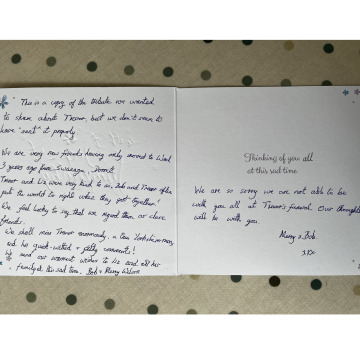 This is a copy of the tribute we wanted
to share about Trevor, but we don't seem to
have "sent" it properly
We are very new friends having only moved to
3 years ago from Swanage, Dorset.
Trevor and Liz were very kind to us, Bob and Trevor often
put the world to right when they got together!
We feel lucky to say that we regard them as close
friends.
We shall miss Trevor enormously, a true Yorkshireman,
and his quick-witted + pithy comments!
We send our warmest wishes to Liz and all her
family at this sad time. Bob + Mary
Thinking of you all
at this sad time
We are so sorry we are not able to be
with you all at Trevor's funeral. Our thoughts
will be with you.
Mary & Bob